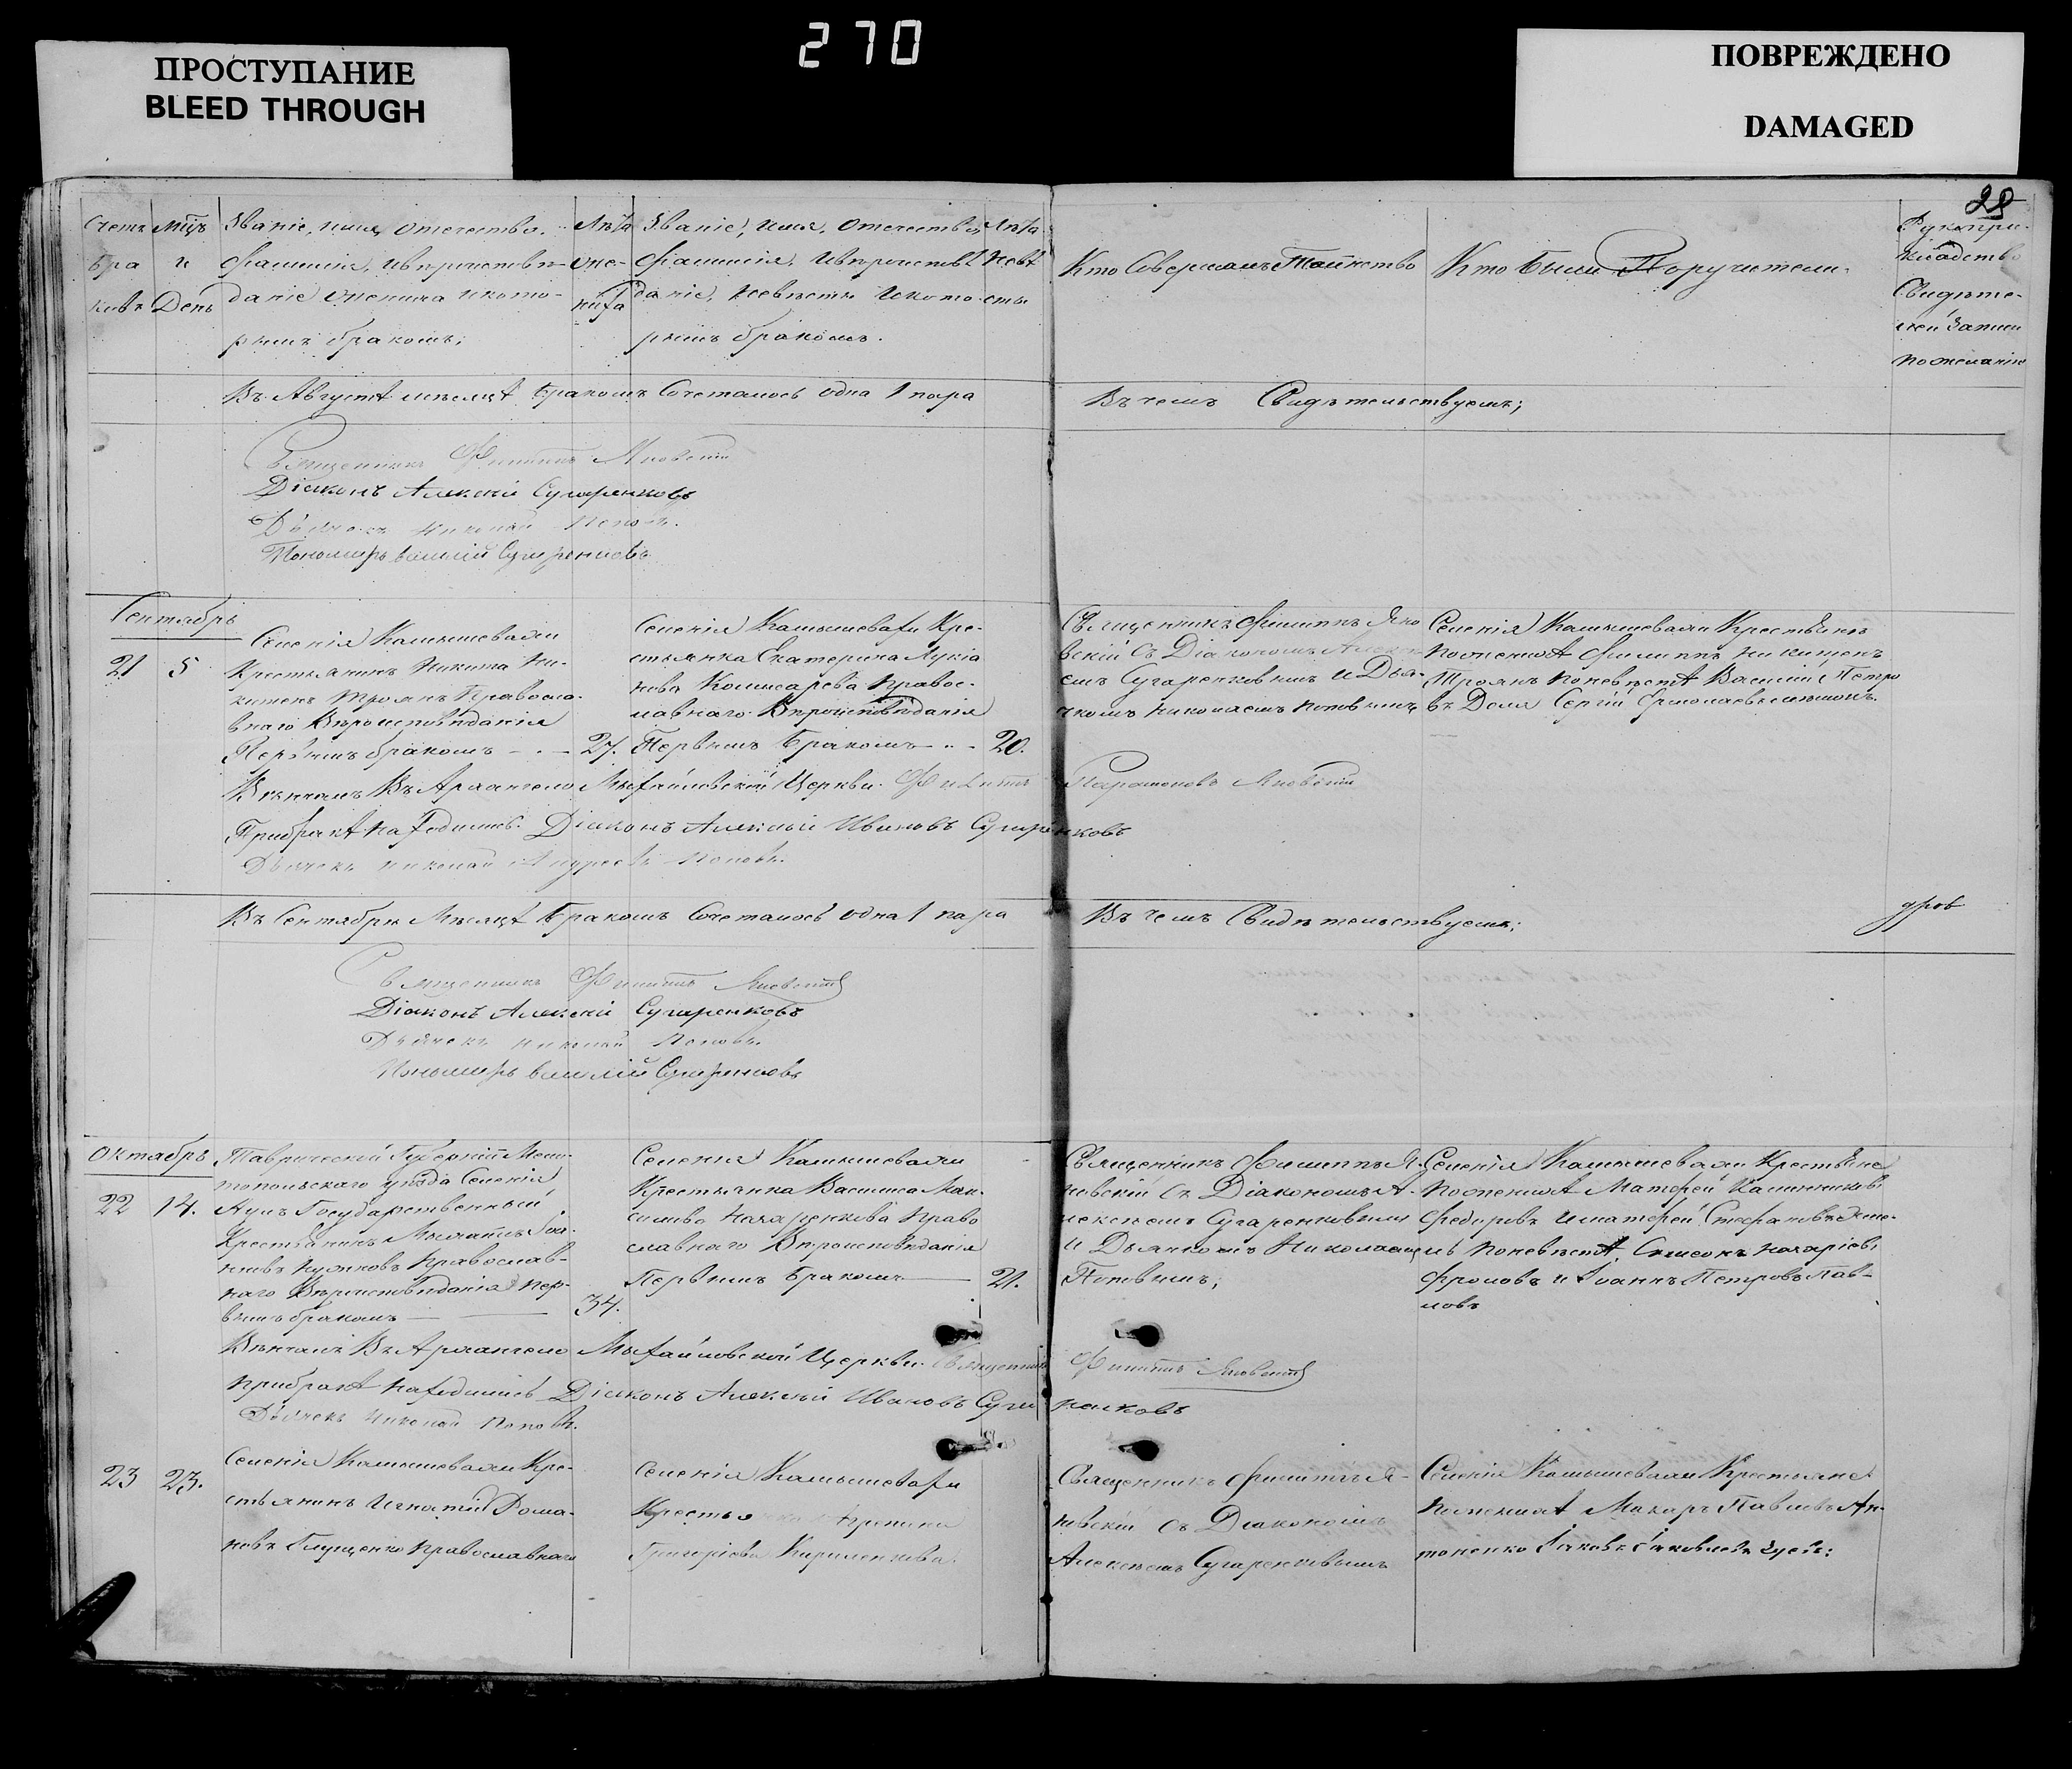 270
ПРОСТУПАНИЕ
BLEED THROUGH
ПОВРЕЖДЕНО
DAMAGED
28
Счетъ
бра
ковъ
Мцъ
и
День
Званіе, имя, отечество,
фамилія, и вѣроисповѣ-
даніе жениха и кото-
рымъ бракомъ;
Лѣта
же-
ниха
Званіе, имя, отечество,
фамилія, и вѣроисповѣ
даніе, невѣсты и кото
рымъ бракомъ.
Лѣта
невѣ
сты
Кто Совершалъ Таинство
Кто были Поручители.
Рукопри-
кладство
Свидѣте-
лей записи
по желанію
Въ Августѣ мѣсяцѣ бракомъ Сочеталось одна 1 пара
Въ чемъ Свидѣтельствуемъ;
Священникъ Филиппъ Яновскій
Діаконъ Алексій Сугаренковъ
Дьячекъ Николай Поповъ.
Пономарь Василій Сугаренковъ
Сентябрь
21 5
Селенія Камышевахи
Крестьянинъ Никита Ни-
китенъ Троянъ Правосла-
внаго Вѣроисповѣданія
Первымъ бракомъ - - - 27.
Селенія Камышевахи Кре-
стьянка Екатерина Лукіа
нова Комисарева Правос-
лавнаго Вѣроисповѣданія
Первымъ бракомъ - - - 20.
Священникъ Филиппъ Яно
вскій Съ Діакономъ Алексі-
емъ Сугаренковымъ и Дья-
чкомъ Николаемъ Поповымъ
Селенія Камышевахи Крестьяне
по женихѣ Филиппъ Никитенъ
Троянъ по невѣстѣ Василій Петро
въ Сергій
Вѣнчалъ Въ Архангело Михайловской Церкви Филиппъ Парамоновъ Яновскій
При бракѣ находились Діаконъ Алексій Ивановъ Сугаренковъ
Дьячекъ Николай Андреевъ Поповъ.
Въ Сентябрѣ Мѣсяцѣ бракомъ Сочеталось одна 1 пара
Въ чемъ Свидѣтельствуемъ;
Священникъ Филиппъ Яновскій
Діаконъ Алексій Сугаренковъ
Дьячекъ Николай Поповъ.
Пономарь Василій Сугаренковъ
Октябрь
22 14.
Таврической Губерніи Мели-
топольскаго уѣзда Селенія
Государственный
Крестьянинъ Іоа-
нновъ Православ-
наго Вѣроисповѣданія пер-
вымъ бракомъ — 34.
Селенія Камышевахи
Крестьянка Василиса Мак-
симова Назаренкова Право
славнаго Вѣроисповѣданія
Первымъ бракомъ — 21.
Священникъ Филиппъ Я-
новскій Съ Діакономъ А-
лексіемъ Сугаренковымъ
и Дьячкомъ Николаемъ
Поповымъ;
Селенія Камышевахи Крестьяне
по женихѣ Матфей Калинниковъ
Федоровъ и Матфей Стефановъ
по невѣстѣ Симеонъ Назаріевъ
Фроловъ и Іоаннъ Петровъ Пав-
ловъ
Вѣнчалъ Въ Архангело Михайловской Церкви Священникъ Филиппъ Яновскій
При бракѣ находились Діаконъ Алексій Ивановъ Сугаренковъ
Дьячекъ Николай Поповъ.
23 23.
Селенія Камышевахи Кре-
стьянинъ Игнатій Рома-
новъ Глущенко Православнаго
Селенія Камышевахи
Крестьянка
Григоріева Кириленкова
Священникъ Филиппъ Я-
новскій Съ Діакономъ
Алексѣемъ Сугаренковымъ
Селенія Камышевахи Крестьяне
по женихѣ Макаръ Павловъ Ан-
тоненко Іаковъ Іаковлевъ